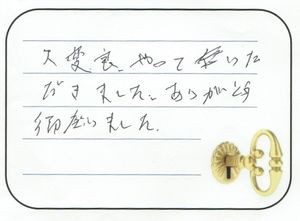 大変良くやって頂いた
だきました。ありがとう
御座いました。